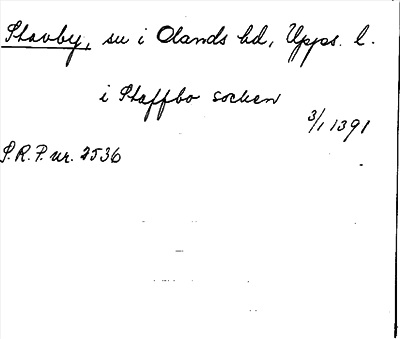 Stavby, sn i Olands hd, Upps. l.
i Staffbo socken
3/1 1391
S.R.P. nr. 2536